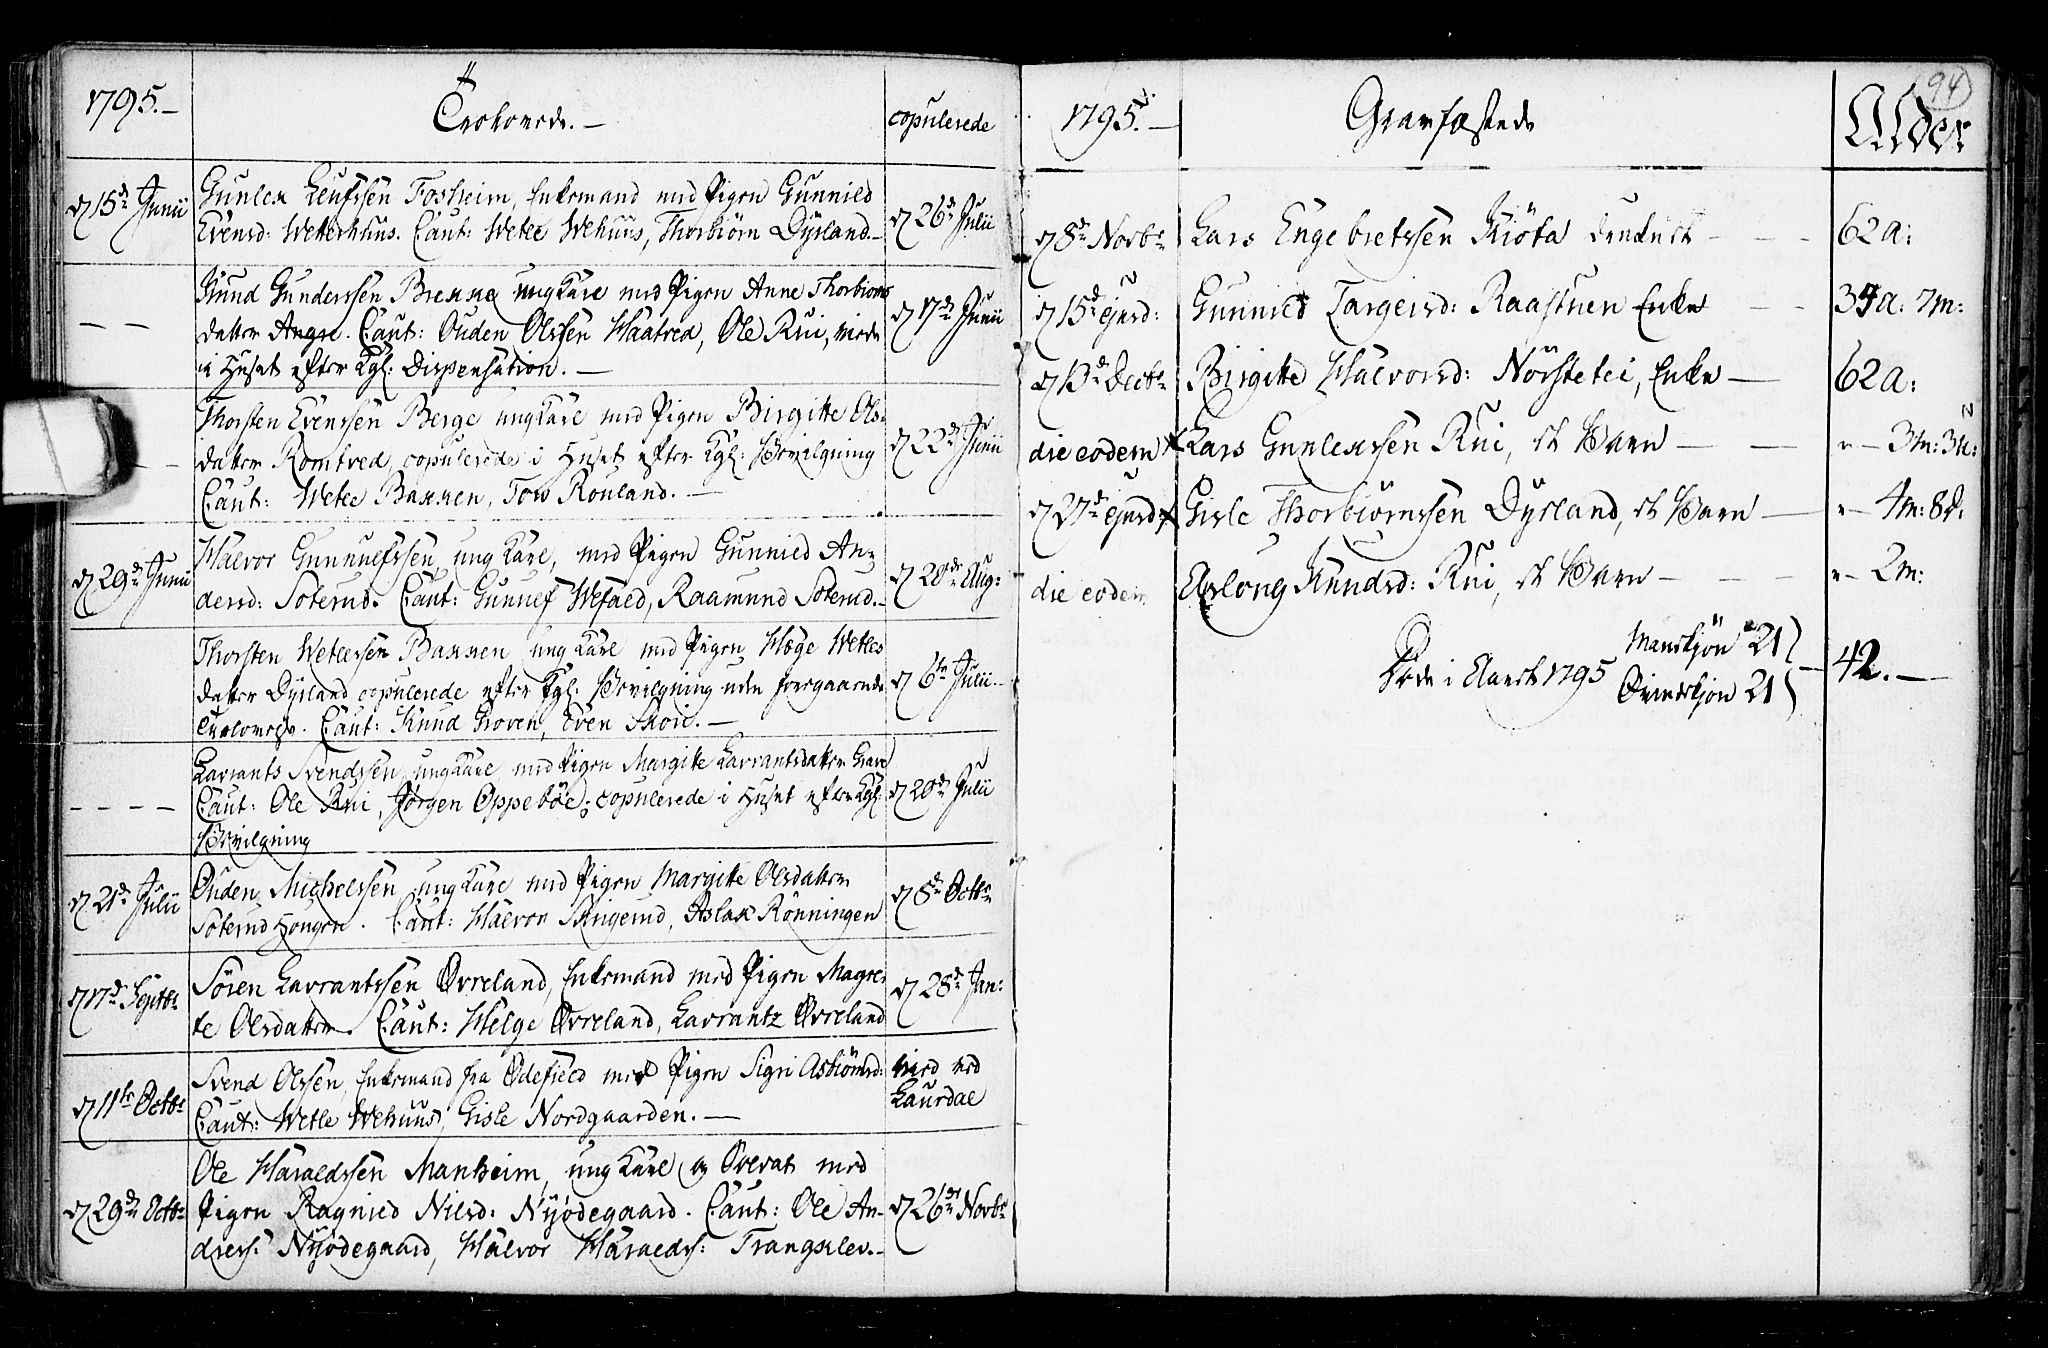 1795.-
Trolovede.-
copulerede
d 15de Junii
Gunlek Leufssen Fosheim, Enkemand med Pigen Gunnild
Evensd: Wetlehuus. Caut: Wetle Wehuus, Thorbiörn Dysland.-
d 26de Julii
- -
Knud Gunderssen Brekke ungKarl med Pigen Anne Thorbiöns
datter Caut: Ouden Olssen Haatved, Ole Rui, viede
i Huset efter Kgl: Dispensation.-
d 17de Junii
Thorsten Evenssen Berge ungKarl med Pigen Birgitte Ols-
datter Romtved copulerede i Huset efter Kgl: Bevilgning
Caut: Wetle Bakken, Tov Rouland.-
d 22de Junii
d 29de Junii
Halvor Gunnulfssen ungKarl, med Pigen Gunnild An-
dersd: Soterud. Caut: Gunulf Wefald, Raamund Soterud.-
d 20de Aug:
Thorsten Wetlessen Bakken ungKarl med Pigen Hæge Wetles
datter Dysland copulerede efter Kgl: Bevilgning uden foregaaende
Trolovelse. Caut: Knud Groven, Even Skori.-
d 6te Julii.-
- - - -
Lavrants Svendssen ungKarl med Pigen Margitte Lavrantsdatter Grave
Caut: Ole Rui, Jörgen Oppeböe; copulerede i Huset efter Kgl:
Bevilgning
d 20de Julii
d 21de Julii
Ouden Michelssen ungKarl med Pigen Margitte Olsdatter
Soterud Hougen. Caut: Halvor Skigerud, Aslak Rönningen
d 8de Octbr
d 17de Septbr
Sören Lavrantssen Øvreland, Enkemand med Pigen Magre-
te Olsdatter. Caut: Helge Øvreland, Lavrantz Øvreland
d 28de Jan:
d 11te Octbr
Svend Olssen, Enkemand fra Ødefield med Pigen Sigri Asbiörnsd:
Caut: Wetle Wehuus, Gisle Nordgaarden.-
vied ved
Laurdal
d 29de Octbr
Ole Haraldssen Manheim, ungKarl og Soldat med
Pigen Ragnild Nilsd: Nyödegaard. Caut: Ole An-
dress: Nyödegaard, Halvor Haralds: Trangklev.-
d 26de Novbr
94
1795.-
Gravfæstede
Alder
d 8de Novbr
Lars Engebretssen Kiöta druknet - - -
62 a:
d 15de ejusd:
Gunnild Targeirsd: Raastuen Enke - -
34 a: 7m:
d 13de Decbr
Birgitte Halvorsd: Nörstetei, Enke -
62 a:
die eodem
Lars Gunlekssen Rui, et Barn - -
- 3m: 3u:
d 27de ejusd
Gisle Thorbiörnssen Dysland, et Barn -
- 4m: 8d.
die eodem
Asloug Knudsd: Rui, et Barn - - -
- 2m:
Mandkjön 21
Døde i Aaret 1795
42.-
Qvindekjön 21